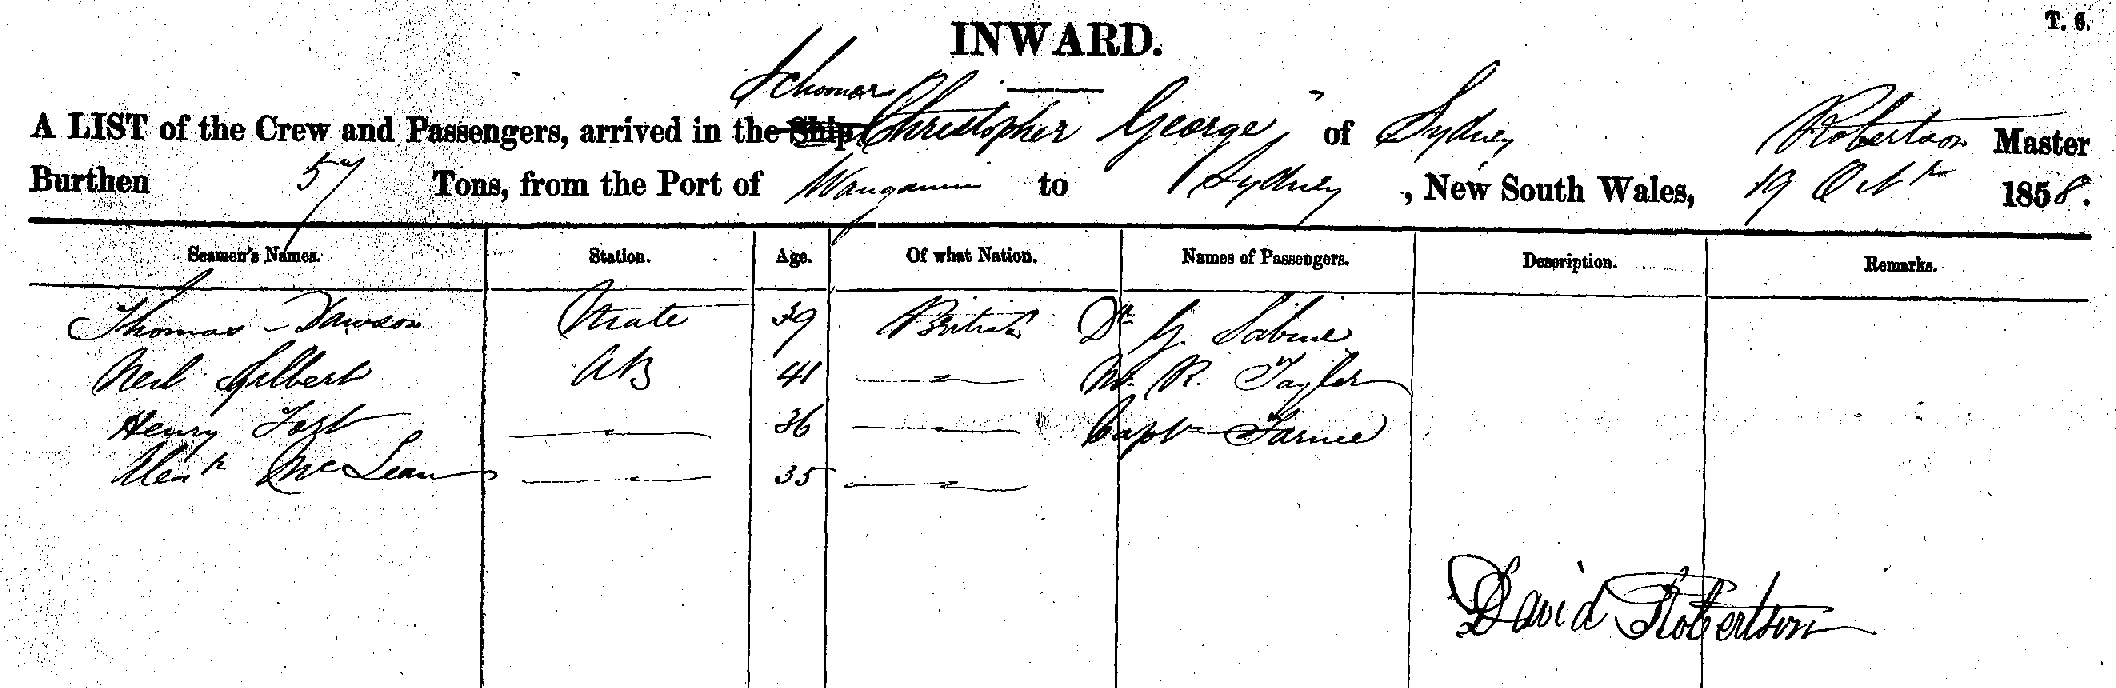 T. 6.
INWARD.
Schonar
A LIST of the Crew and Passengers, arrived in the Ship "Christopher George" of Sydney Robertson Master
Burthen 57 Tons, from the Port of Wanganui to Sydney, New South Wales, 19 Octr 1858.
Seamen's Names. Station. Age. Of what Nation. Names of Passengers. Description. Remarks.
Thomas Dawson Mate 39 British Dr G. Sabine
Neil Gilbert AB 41 —"— R. Taylor
Henry —"— 36 —"— Capt
Alexr McLean —"— 35 —"—
David Robertson